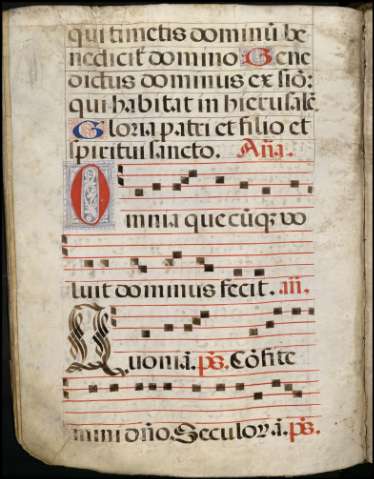 qui timetis dominū be
nedicit̄ domino. Bene
dictus dominus ex sió:
qui habitat in hierusalē.
Gloria patri et filio et
spiritui sancto. Aña.
Omnia quecūqꝫ vo
luit dominus fecit. añ.
Quoniā. ps̄. Cōfite
mini dño. Seculoꝝ. ā. ps̄.